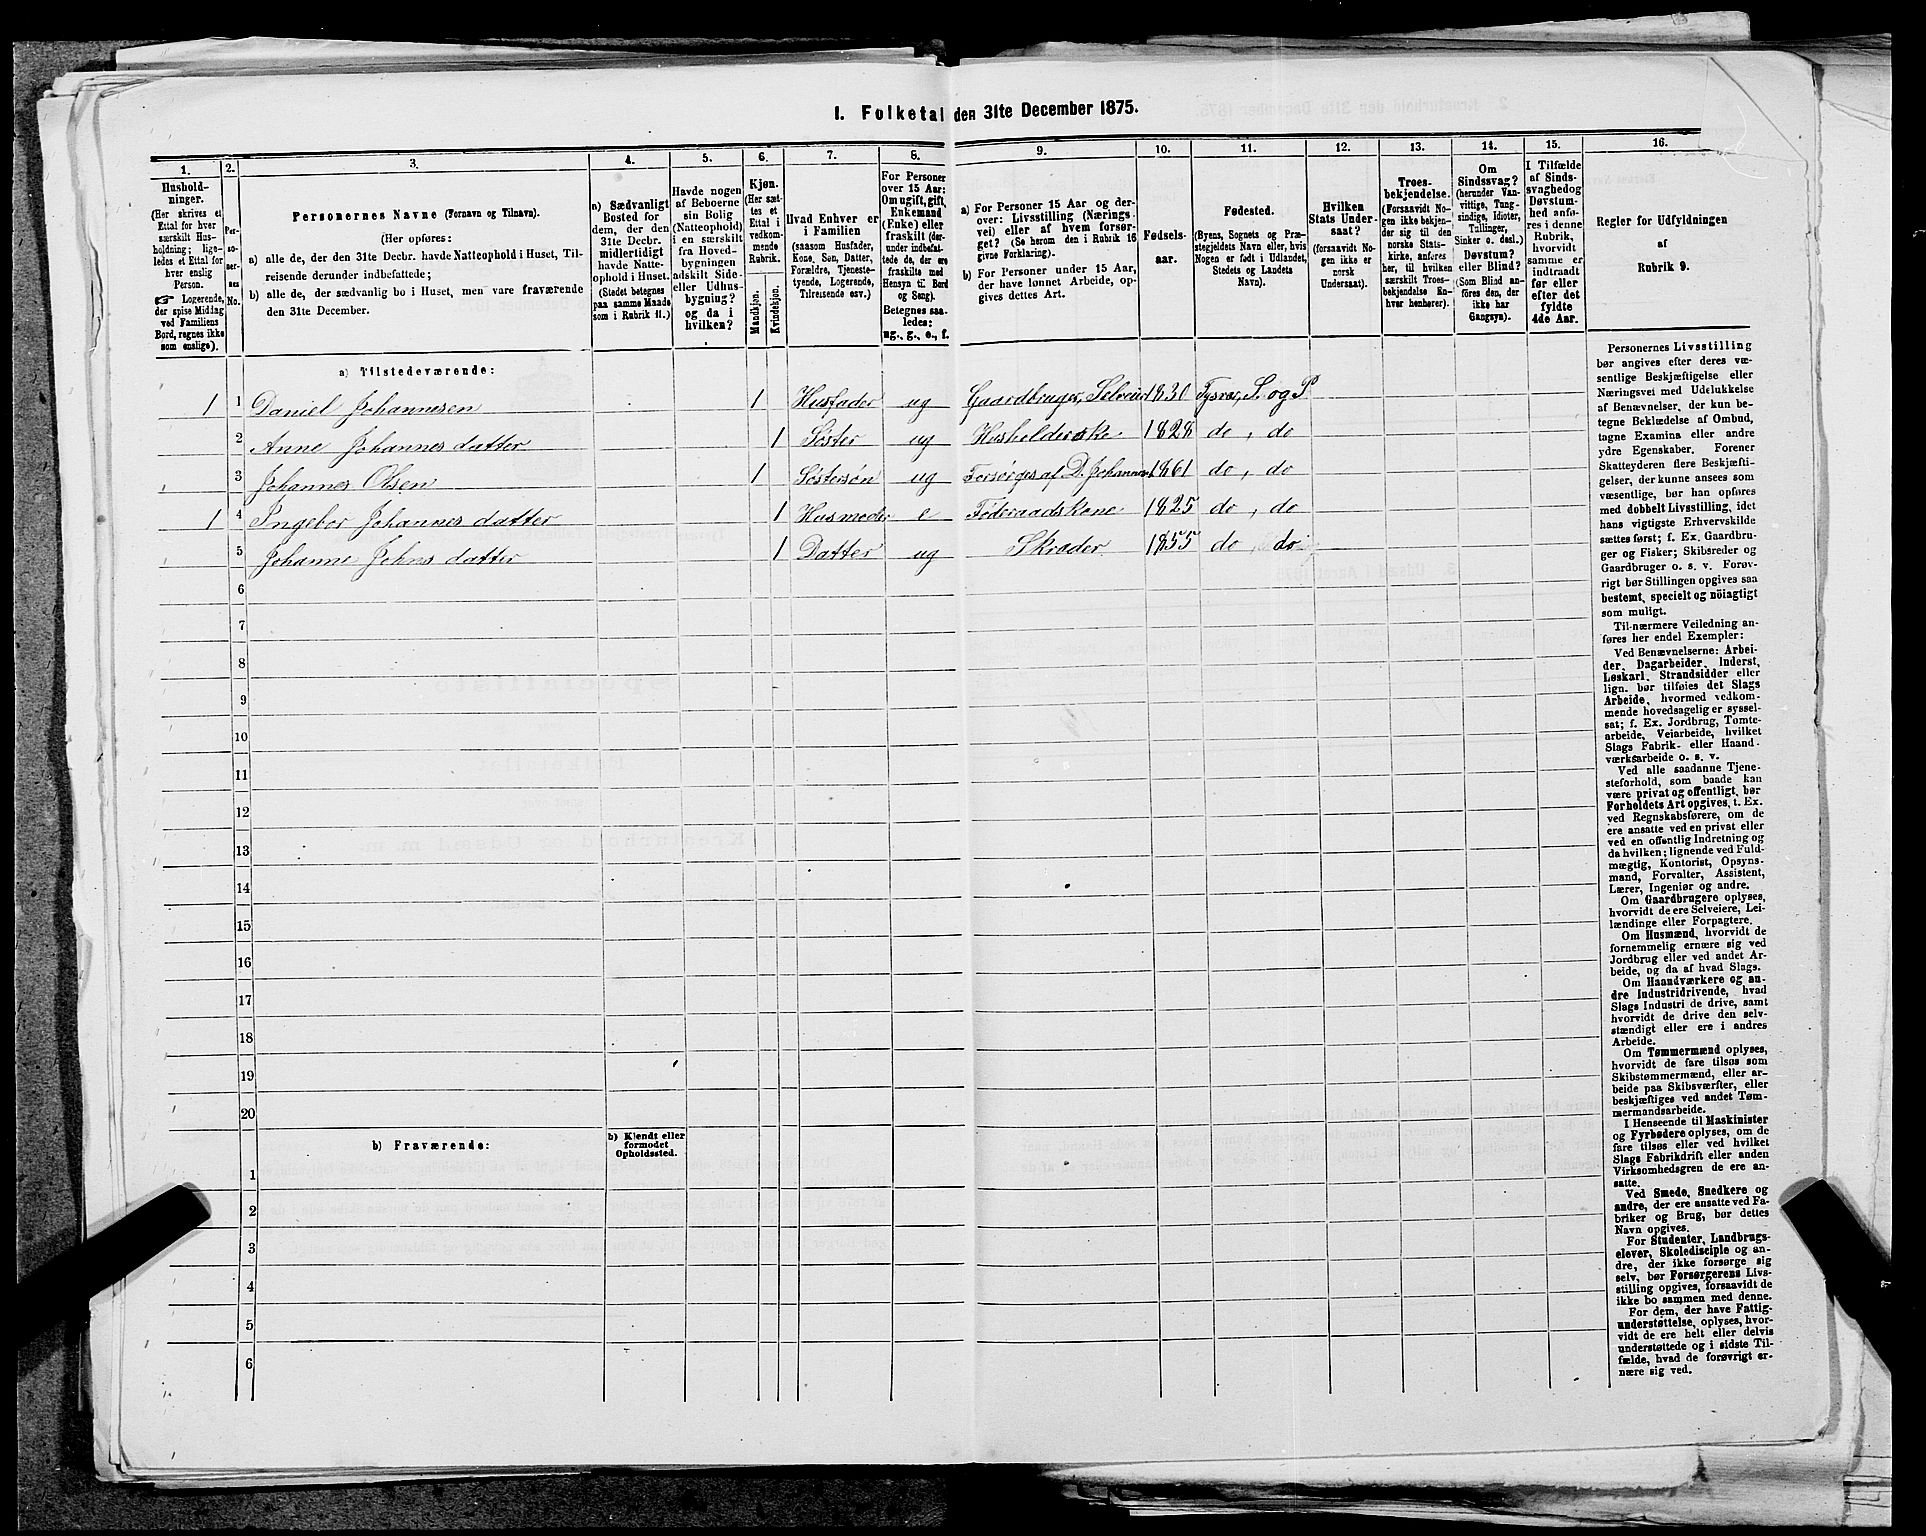 I. Folketal den 31te December 1875.
1. 2. 3. 4. 5. 6. 7. 8. 9. 10. 11. 12. 13. 14. 15. 16.
Hushold-
ninger.
(Her skrives et
Ettal for hver
særskilt Hus-
holdning; lige-
ledes et Ettal for
hver enslig
Person.
☞ Logerende,
der spise Middag
ved Familiens
Bord, regnes ikke
som enslige).
Per-
so-
ner-
nes
No.
Personernes Navne (Fornavn og Tilnavn).
(Her opføres:
a) alle de, der den 31te Decbr. havde Natteophold i Huset, Til-
reisende derunder indbefattede;
b) alle de, der sædvanlig bo i Huset, men vare fraværende
den 31te December.
a) Sædvanligt
Bosted for
dem, der den
31te Decbr.
midlertidigt
havde Natte-
ophold i Huset.
(Stedet betegnes
paa samme Maade
som i Rubrik 11.)
Havde nogen
af Beboerne
sin Bolig
(Natteophold)
i en særskilt
fra Hoved-
bygningen
adskilt Side-
eller Udhus-
bygning?
og da i
hvilken?
Kjøn.
(Her sæt-
tes et
Ettal i
vedkom-
mende
Rubrik.
Mandkjøn.
Kvindekjøn.
Hvad Enhver er
i Familien
(saasom Husfader,
Kone, Søn, Datter,
Forældre, Tjeneste-
tyende, Logerende,
Tilreisende osv.)
For Personer
over 15 Aar:
Om ugift, gift,
Enkemand
(Enke) eller
fraskilt (der-
under indbefat-
tede de, der ere
fraskilte med
Hensyn til Bord
og Seng).
Betegnes saa-
ledes:
ug., g., e., f.
a) For Personer 15 Aar og der-
over: Livsstilling (Nærings-
vei) eller af hvem forsør-
get? (Se herom den i Rubrik 16
givne Forklaring).
b) For Personer under 15 Aar,
der have lønnet Arbeide, op-
gives dettes Art.
Fødsels-
aar.
Fødested.
(Byens, Sognets og Præ-
stegjeldets Navn eller, hvis
Nogen er født i Udlandet,
Stedets og Landets
Navn).
Hvilken
Stats Under-
saat?
(forsaavidt No-
gen ikke er
norsk
Undersaat).
Troes-
bekjendelse.
(Forsaavidt No-
gen ikke bekjen-
der sig til den
norske Stats-
kirke, anføres
her, til hvilken
særskilt Troes-
bekjendelse En-
hver henhører).
Om
Sindssvag?
(herunder Van-
vittige, Tung-
sindige, Idioter,
Tullinger,
Sinker o. desl.)
Døvstum?
eller Blind?
(Som Blind an-
føres den, der
ikke har
Gangsyn).
I Tilfælde
af Sinds-
svaghed og
Døvstum-
hed anfø-
res i denne
Rubrik,
hvorvidt
samme er
indtraadt
før eller
efter det
fyldte
4de Aar.
Regler for Udfyldningen
af
Rubrik 9.
a) Tilstedeværende:
1 1 Daniel Johannesen 1 Husfader ug Gaardbruger, Selveier 1830 Tysvær, S. og P
2 Anne Johannesdatter 1 Søster ug Husholderske 1828 do, do
3 Johannes Olsen 1 Søstersøn ug Forsørges af D. Johannes 1861 do, do
1 4 Ingebor Johannesdatter 1 Husmoder e Føderaadskone 1825 do, do
5 Johanne Johnsdatter 1 Datter ug Skræder 1855 do, do
6
7
8
9
10
11
12
13
14
15
16
17
18
19
20
b) Fraværende:
b) Kjendt eller
formodet
Opholdssted.
1
2
3
4
5
6
Personernes Livsstilling
bør angives efter deres væ-
sentlige Beskjæftigelse eller
Næringsvei med Udelukkelse
af Benævnelser, der kun be-
tegne Beklædelse af Ombud,
tagne Examina eller andre
ydre Egenskaber. Forener
Skatteyderen flere Beskjæfti-
gelser, der kunne ansees som
væsentlige, bør han opføres
med dobbelt Livsstilling, idet
hans vigtigste Erhvervskilde
sættes først; f. Ex. Gaardbru-
ger og Fisker; Skibsreder og
Gaardbruger o. s. v. Forøv-
rigt bør Stillingen opgives saa
bestemt, specielt og nöiagtigt
som muligt.
Til nærmere Veiledning an-
føres her endel Exempler:
Ved Benævnelserne: Arbei-
der, Dagarbeider, Inderst,
Løskarl, Strandsidder eller
lign. bør tilføies det Slags
Arbeide, hvormed vedkom-
mende hovedsagelig er syssel-
sat; f. Ex. Jordbrug, Tomte-
arbeide, Veiarbeide, hvilket
Slags Fabrik- eller Haand-
værksarbeide o. s. v.
Ved alle saadanne Tjene-
steforhold, som baade kan
være privat og offentligt, bør
Forholdets Art opgives, t. Ex.
ved Regnskabsførere, om de
ere ansatte ved en privat eller
ved en offentlig Indretning og
da hvilken; lignende ved Fuld-
mægtig, Kontorist, Opsyns-
mand, Forvalter, Assistent,
Lærer, Ingeniør og andre.
Om Gaardbrugere oplyses,
hvorvidt de ere Selveiere, Lei-
lændinge eller Forpagtere.
Om Husmænd, hvorvidt de
fornemmelig ernære sig ved
Jordbrug eller ved andet Ar-
beide, og da af hvad Slags.
Om Haandværkere og an-
dre Industridrivende, hvad
Slags Industri de drive, samt
hvorvidt de drive den selv-
stændigt eller ere i andres
Arbeide.
Om Tømmermænd oplyses,
hvorvidt de fare tilsøs som
Skibstømmermænd, eller ar-
beide paa Skibsværfter, eller
beskjæftiges ved andet Tøm-
mermandsarbeide.
I Henseende til Maskinister
og Fyrbødere oplyses, om de
fare tilsøs eller ved hvilket
Slags Fabrikdrift eller anden
Virksomhedsgren de ere an-
satte.
Ved Smede, Snedkere og
andre, der ere ansatte ved Fa-
briker og Brug, bør dettes
Navn opgives.
For Studenter, Landbrugs-
elever, Skoledisciple og an-
dre, der ikke forsørge sig
selv, bør Forsørgerens Livs-
stilling opgives, forsaavidt de
ikke bo sammen med denne.
For dem, der have Fattig-
understøttelse, oplyses, hvor-
vidt de ere helt eller delvis
understøttede og i sidste Til-
fælde, hvad de forøvrigt er-
nære sig ved.